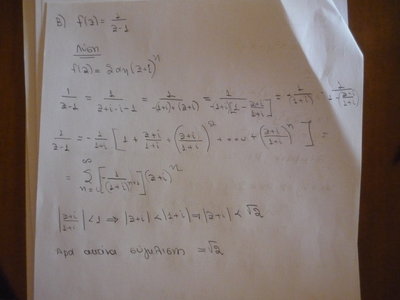 B) f(z) = 2/(z-1)
Λύση
f(z) = Σ αη (z+i)^n
1/(z-1) = 1/(z+i-i-1) = 1/(-(1+i)+(z+i)) = 1/(-(1+i)[1 - (z+i)/(1+i)]) = -1/(1+i) · 1/(1-(z+i)/(1+i))
1/(z-1) = -1/(1+i) [1 + (z+i)/(1+i) + ((z+i)/(1+i))^2 + ... + ((z+i)/(1+i))^n] =
= Σ [-1/(1+i)^(n+1)] (z+i)^n
|(z+i)/(1+i)| < 1 ⇒ |z+i| < |1+i| ⇒ |z+i| < √2
Αρα ακτίνα σύγκλιση = √2